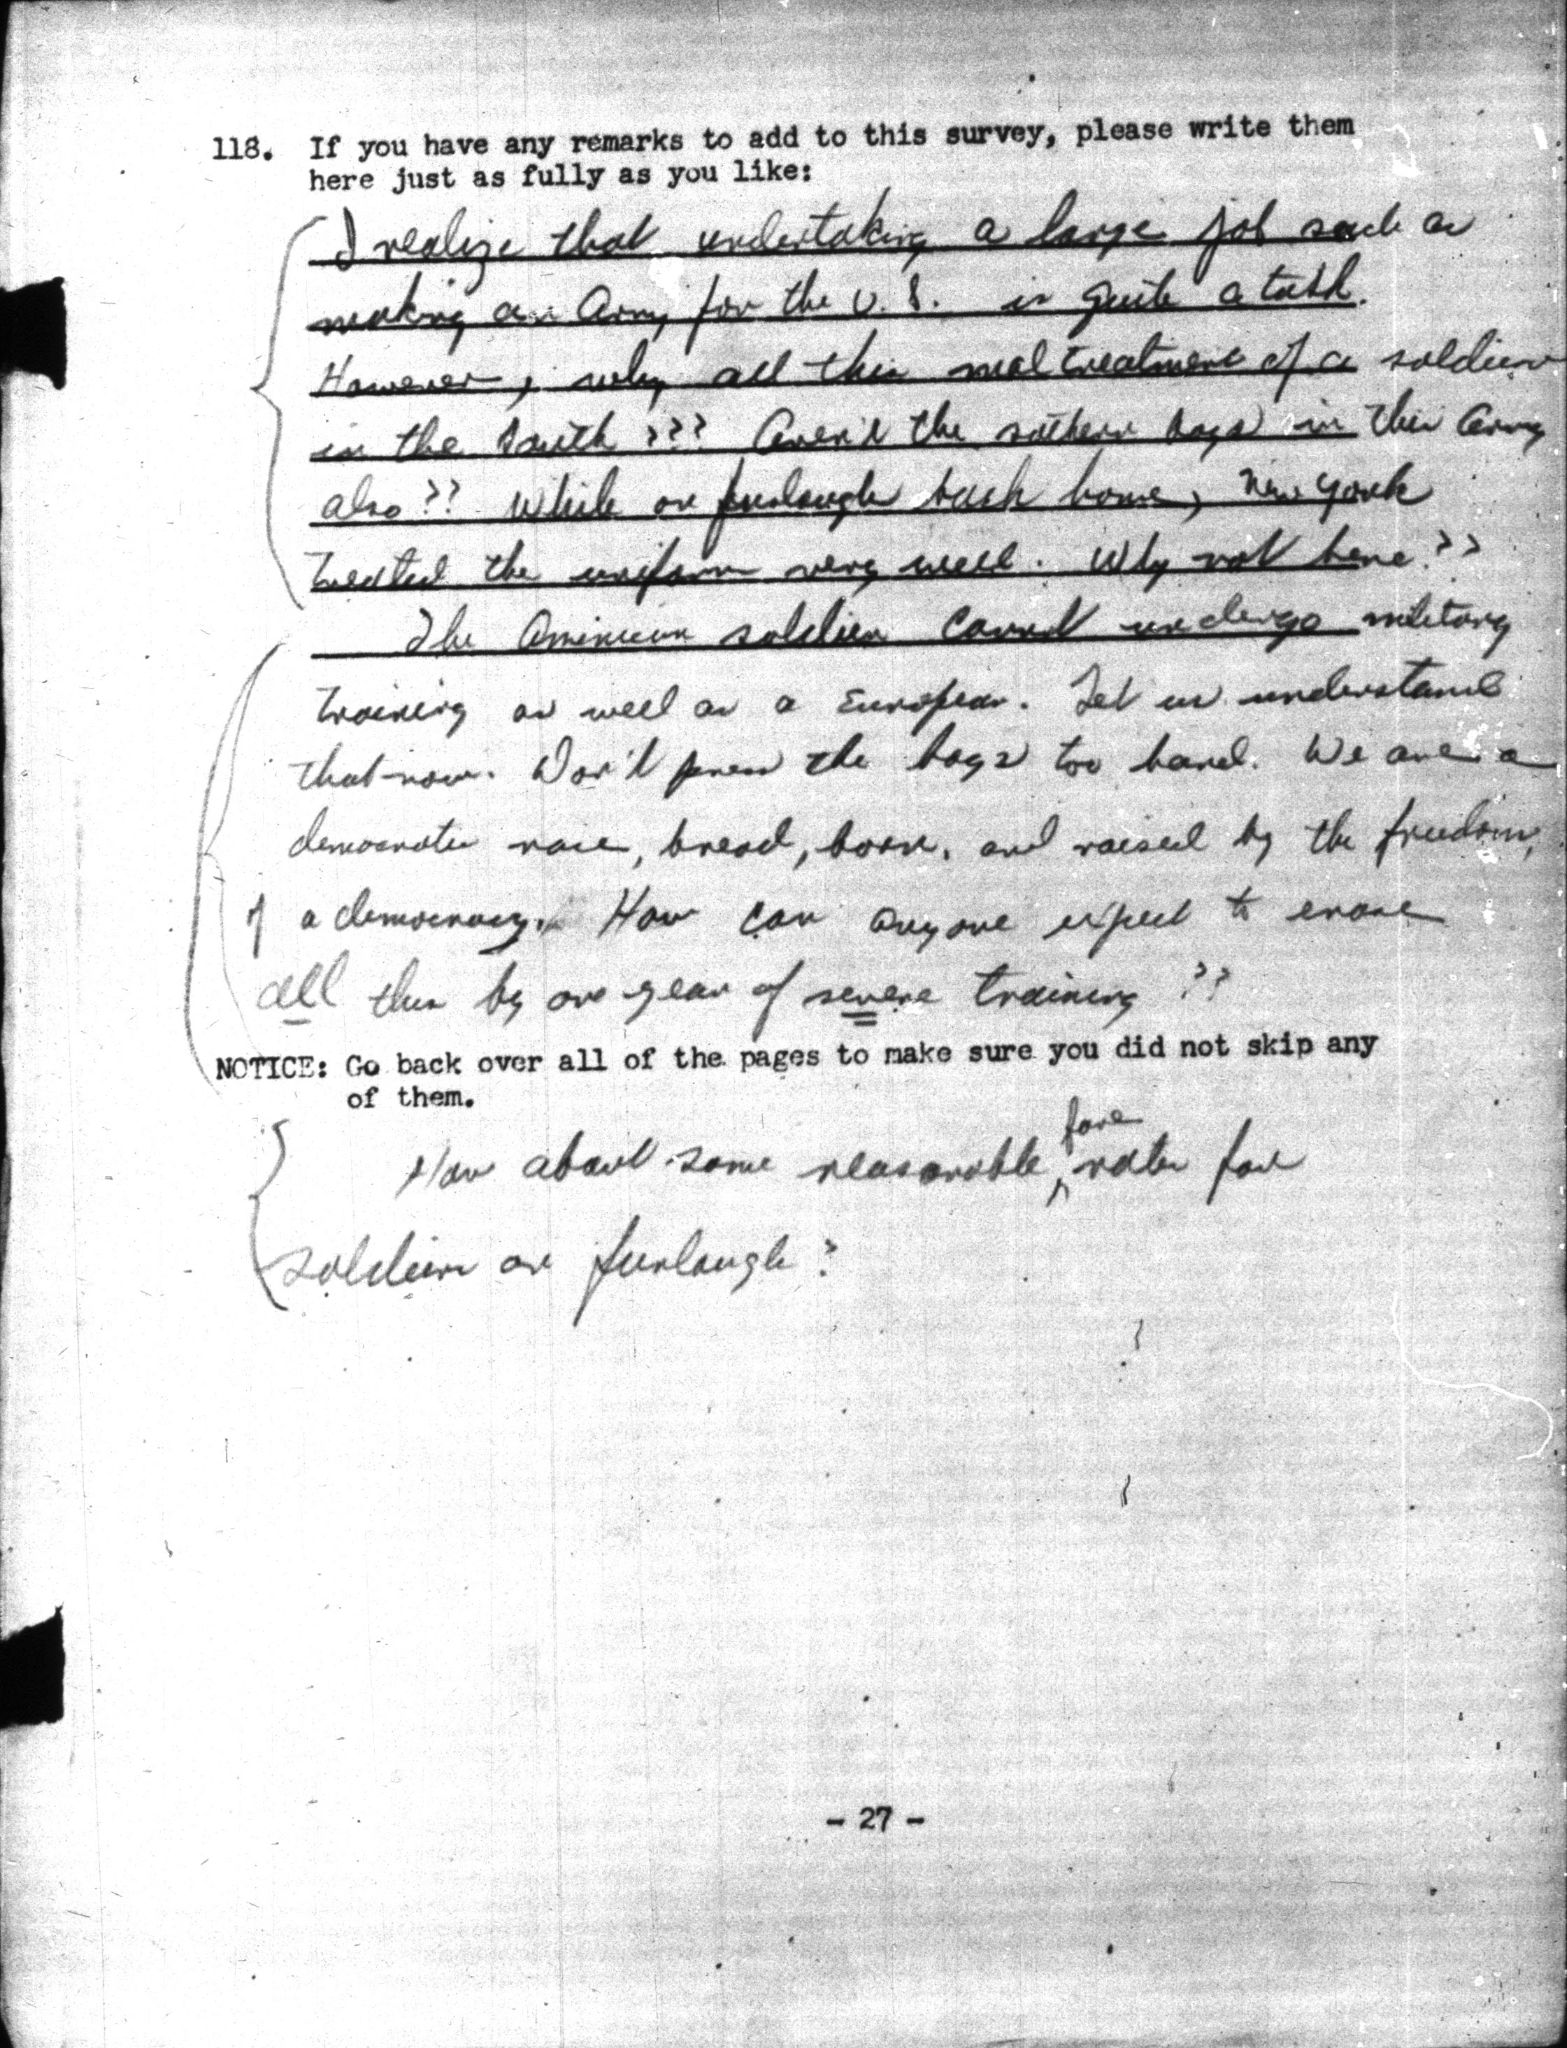 118. If you have any remarks to add to this survey, please write them
here just as fully as you like:
I realize that undertaking a large job such as
making an Army for the U.S. is quite a task.
However, why all this maltreatment of a soldier
in the South??? Aren't the sothern boys in this Army
also?? While on furlough back home, New York
treated the uniform very well. Why not here??
The American soldier cannot undergo military
training as well as a European. Let us understand
that now. Don't press the boys too hard. We are a
democratic race, bread, born, and raised by the freedom,
of a democracy. How can anyone expect to erase
all this by one year of severe training??
NOTICE: Go back over all of the pages to make sure you did not skip any
of them.
How about some reasonable fare rates for
soldiers on furlough?
- 27 -